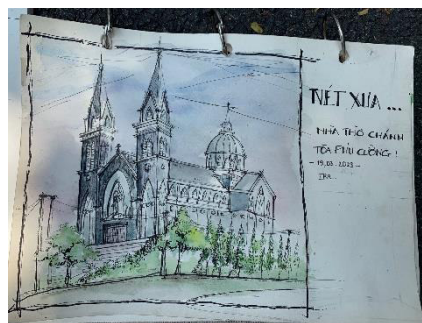 NÉT XƯA ...
NHÀ THỜ CHÁNH
TÒA PHÚ CƯỜNG !
- 19.03.2023 -